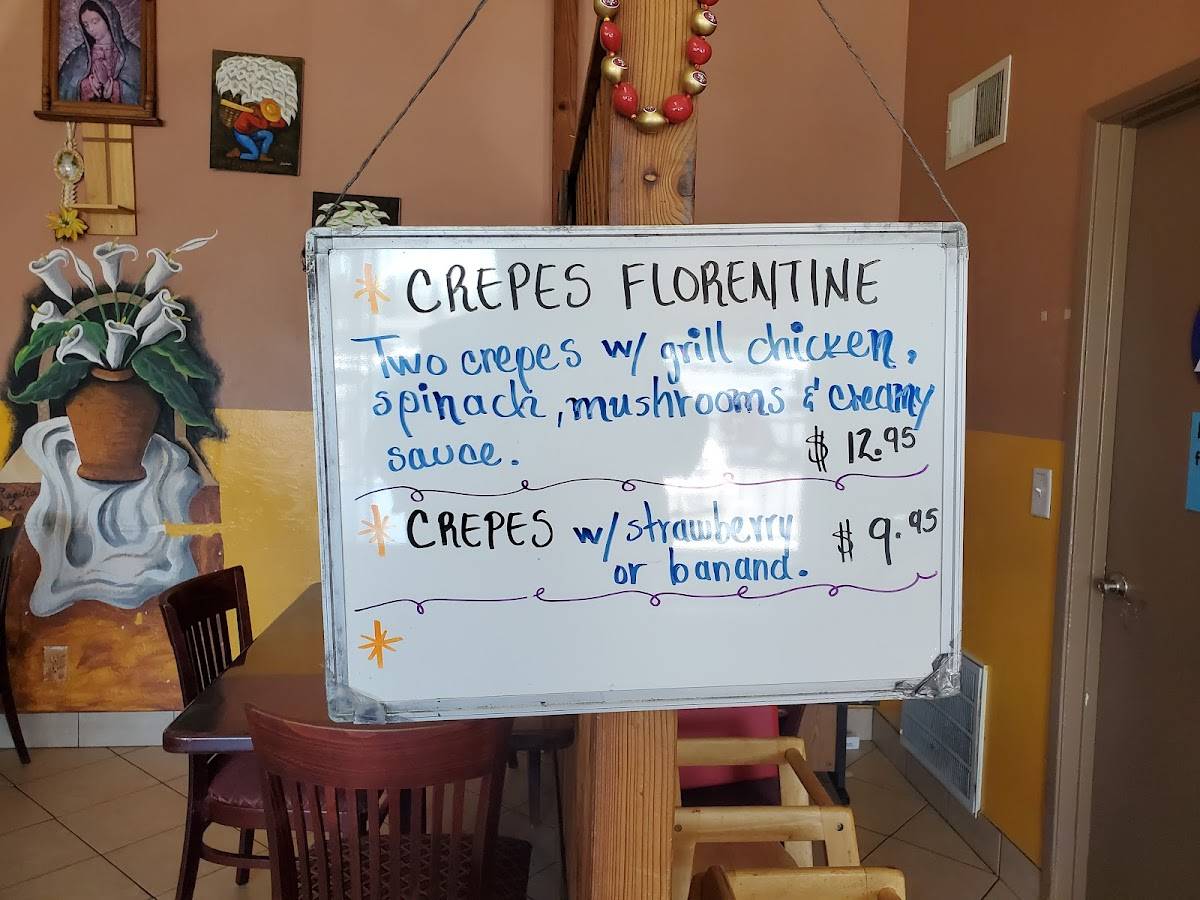 * CREPES FLORENTINE
Two crepes w/ grill chicken,
spinach, mushrooms & creamy
sauce. $ 12.95
* CREPES w/ strawberry $ 9.95
or banana.
*